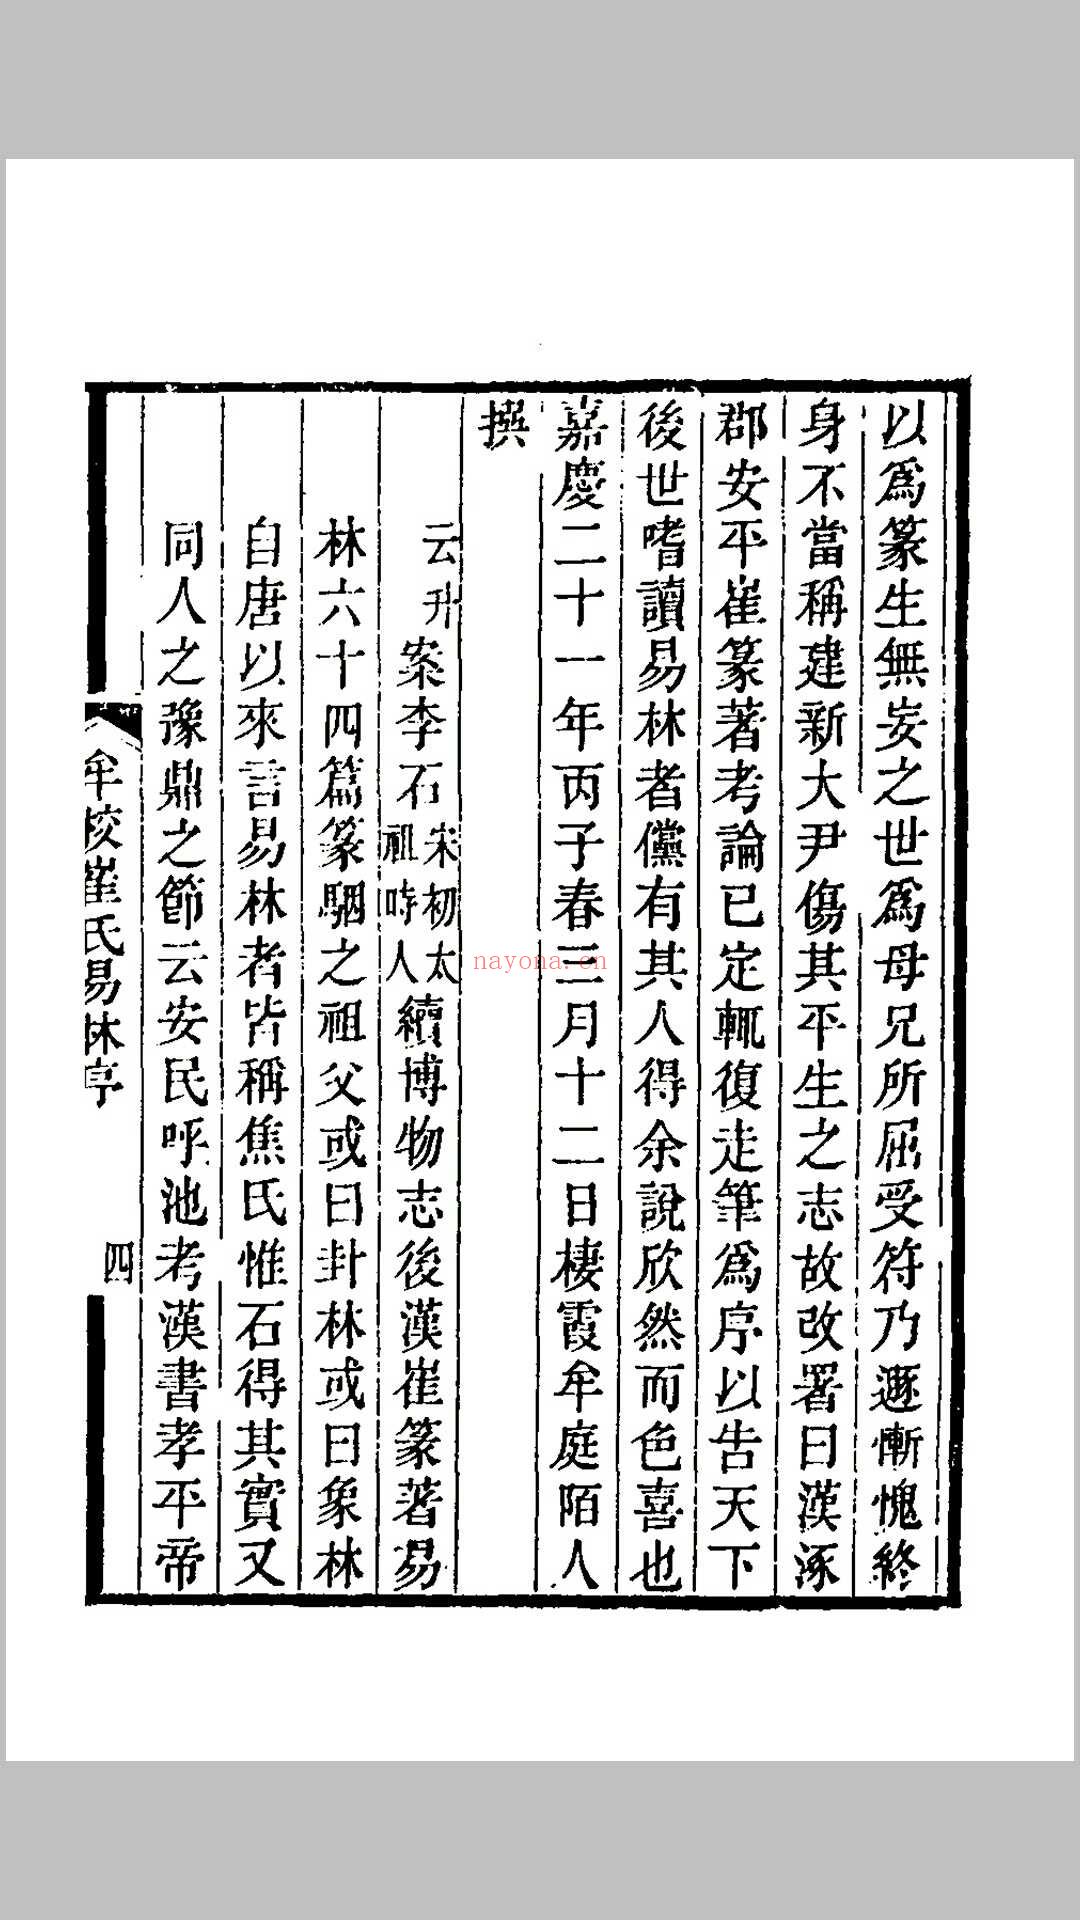 以爲篆生無妄之世爲母兄所屈受符乃遯慚愧終
身不當稱建新大尹傷其平生之志故改署曰漢涿
郡安平崔篆著考論已定輒復走筆爲序以告天下
後世嗜讀易林者儻有其人得余說欣然而色喜也
嘉慶二十一年丙子春三月十二日棲霞牟庭陌人
撰
云升案李石宋初太祖時人續博物志後漢崔篆著易
林六十四篇篆駰之祖父或曰卦林或曰象林
自唐以來言易林者皆稱焦氏惟石得其實又
同人之豫鼎之節云安民呼池考漢書孝平帝
牟校崔氏易林序
四
nayona.cn